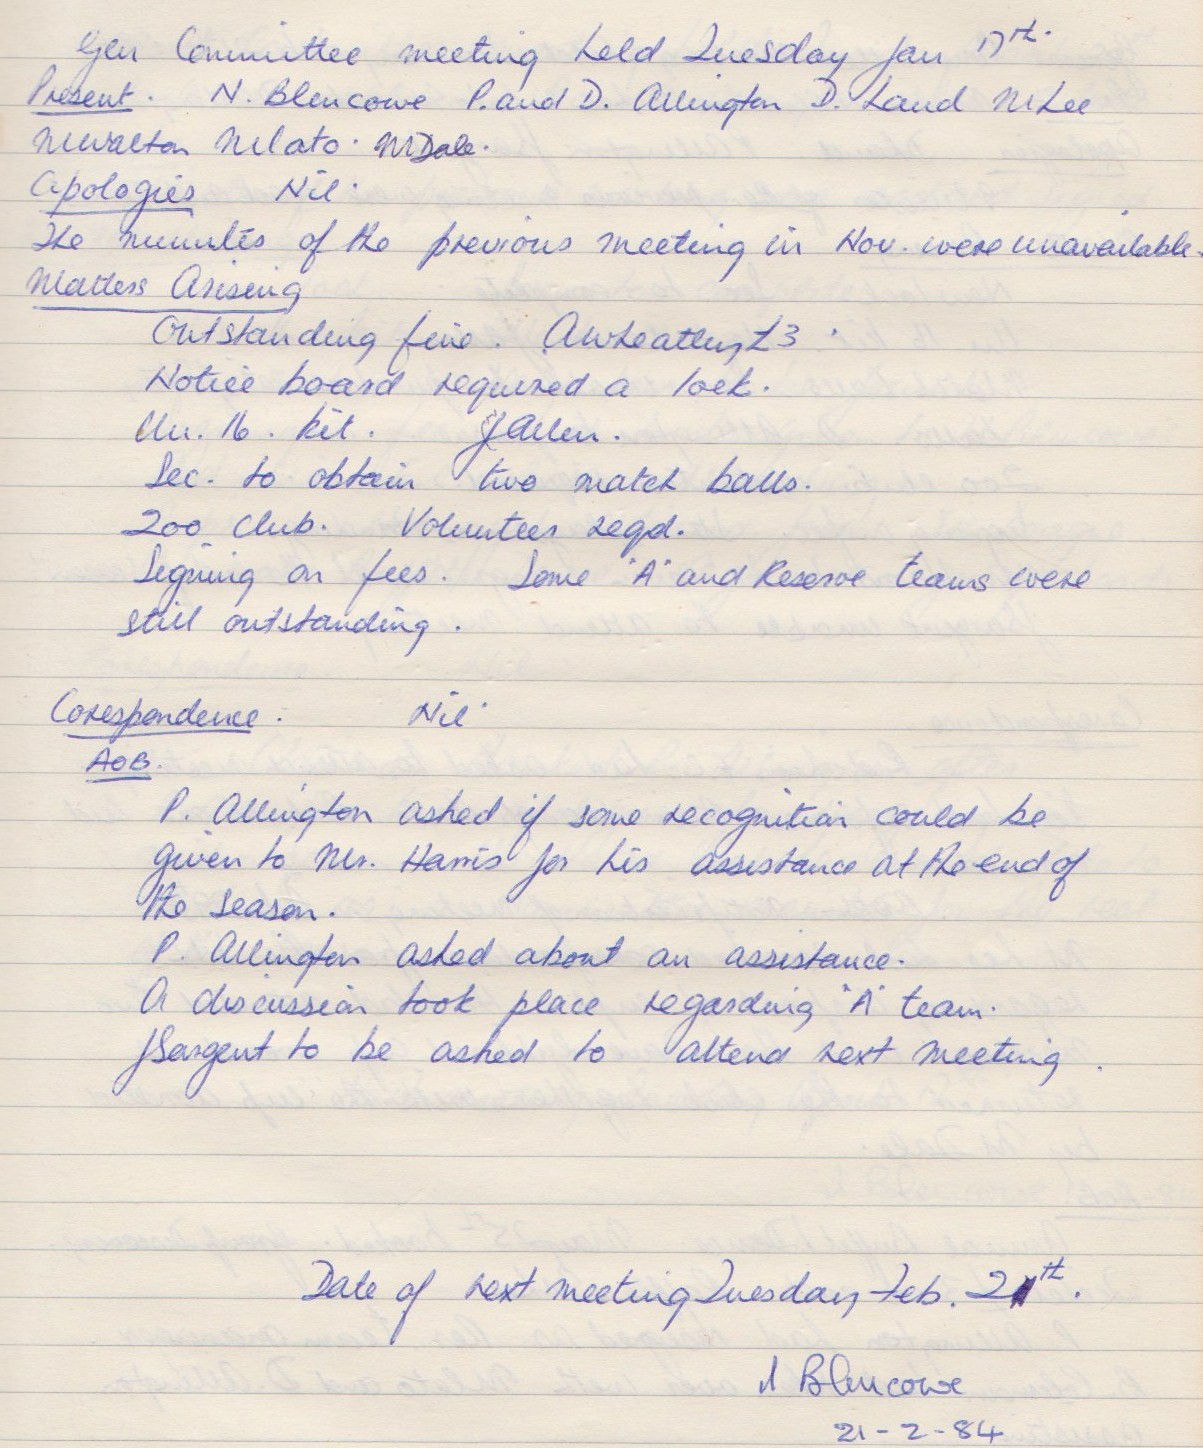 Gen Committee meeting held Tuesday Jan 17th.
Present. N. Blencowe P. and D. Allington D. Land M Lee
M Walton M Lato. M Dale.
Apologies Nil.
The minutes of the previous meeting in Nov. were unavailable.
Matters Arising
Outstanding fine. A Wheatley £3.
Notice board required a lock.
Un. 16. kit. J Allen.
Sec. to obtain two match balls.
200 Club. Volunteer reqd.
Signing on fees. Some "A" and Reserve teams were
still outstanding.
Correspondence. Nil.
AOB.
P. Allington asked if some recognition could be
given to Mr. Harris for his assistance at the end of
the season.
P. Allington asked about an assistance.
A discussion took place regarding "A" team.
J Sargent to be asked to attend next meeting.
Date of next meeting Tuesday Feb. 21th.
N Blencowe
21-2-84